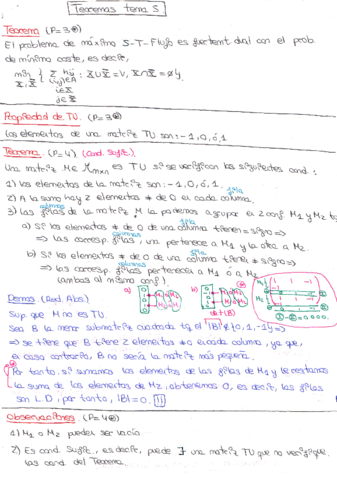 Teoremas tema 5
Teorema (P=3⊛)
El problema de máximo S-T-Flujo es fuertemt dual con el prob.
de mínimo coste, es decir,
min { Σ hij : X∪X̄=V, X∩X̄=∅ }
X, X̄ (i,j)∈A
i∈X
j∈X̄
Propiedad de TU. (P=3⊛)
Los elementos de una matriz TU son: -1, 0, ó 1
Teorema. (P=4) (Cond. Sufic.)
Una matriz M∈ Mmxn es TU si se verifican las siguientes cond.:
1) los elementos de la matriz son: -1, 0, ó 1.
2) A lo sumo hay 2 elementos ≠ de 0 en cada columna.
3) Las filas de la matriz M la podemos agrupar en 2 conj M1 y M2 tq
a) Si los elementos ≠ de 0 de una columna tienen = signo =>
=> las corresp. filas, una pertenece a M1 y la otra a M2.
b) Si los elementos ≠ de 0 de una columna tienen ≠ signo =>
=> las corresp. filas pertenecen a M1 ó a M2
(ambas al mismo conj)
a)
b)
Demos (Red. Abs.)
Sup. que M no es TU.
Sea B la menor submatriz cuadrada tq el |B|∉{0,1,-1} =>
=> se tiene que B tiene 2 elementos ≠ 0 en cada columna, ya que,
en caso contrario, B no sería la matriz más pequeña.
Por tanto, si sumamos los elementos de las filas de M1 y le restamos
la suma de los elementos de M2, obtenemos 0, es decir, las filas
son L.D, por tanto, |B|=0. !!
Observaciones. (P=4⊛)
1) M1 o M2 pueden ser vacío
2) Es cond. Sufic., es decir, puede ∃ una matriz TU que no verifique
las cond. del Teorema.